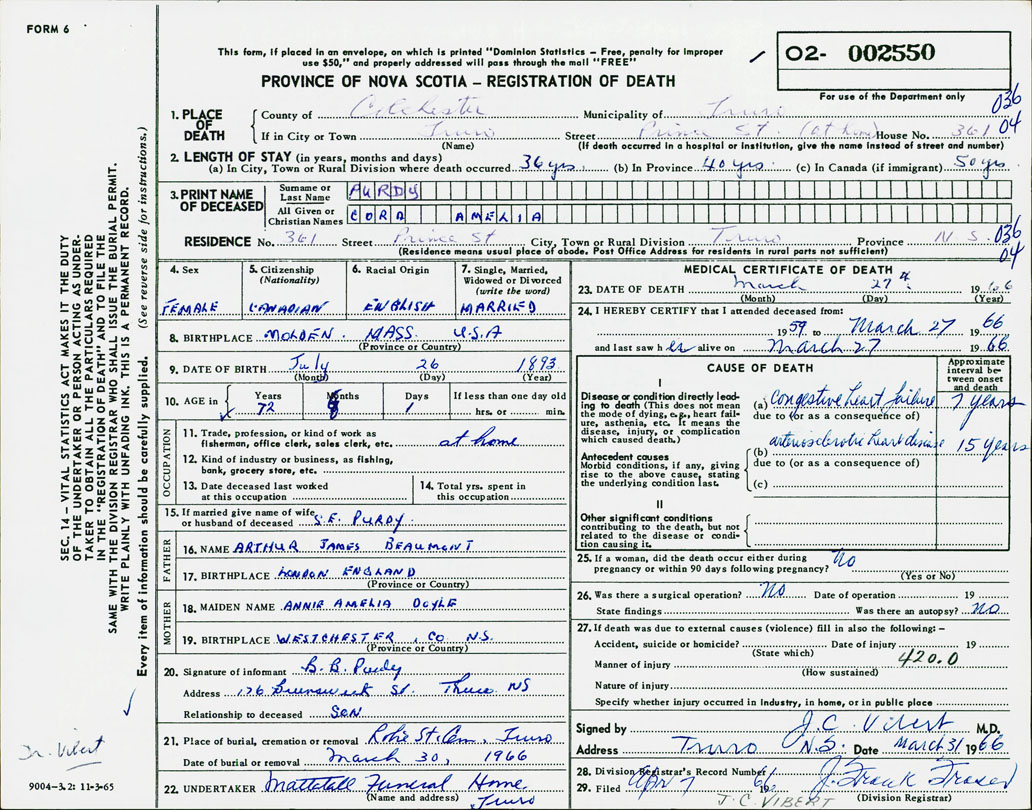 FORM 6
This form, if placed in an envelope, on which is printed "Dominion Statistics – Free, penalty for improper
use $50," and properly addressed will pass through the mail "FREE"
O2- 002550
PROVINCE OF NOVA SCOTIA – REGISTRATION OF DEATH
For use of the Department only
036
04
1. PLACE OF DEATH
County of Colchester Municipality of Truro
If in City or Town Truro Street Prince St. (at home) House No. 361
(Name) (If death occurred in a hospital or institution, give the name instead of street and number)
2. LENGTH OF STAY (in years, months and days)
(a) In City, Town or Rural Division where death occurred 36 yrs. (b) In Province 40 yrs. (c) In Canada (if immigrant) 50 yrs.
3. PRINT NAME OF DECEASED
Surname or Last Name PURDY
All Given or Christian Names CORA AMELIA
RESIDENCE No. 361 Street Prince St City, Town or Rural Division Truro Province N.S. 036
04
(Residence means usual place of abode. Post Office Address for residents in rural parts not sufficient)
4. Sex
FEMALE
5. Citizenship
(Nationality)
CANADIAN
6. Racial Origin
ENGLISH
7. Single, Married,
Widowed or Divorced
(write the word)
MARRIED
8. BIRTHPLACE MOLDEN. MASS U.S.A
(Province or Country)
9. DATE OF BIRTH July 26 1893
(Month) (Day) (Year)
10. AGE in Years Months Days If less than one day old
72 8 1 hrs. or min.
OCCUPATION
11. Trade, profession, or kind of work as
fisherman, office clerk, sales clerk, etc. at home
12. Kind of industry or business, as fishing,
bank, grocery store, etc.
13. Date deceased last worked
at this occupation
14. Total yrs. spent in
this occupation
15. If married give name of wife
or husband of deceased S.E. PURDY.
FATHER
16. NAME ARTHUR JAMES BEAUMONT
17. BIRTHPLACE LONDON ENGLAND
(Province or Country)
MOTHER
18. MAIDEN NAME ANNIE AMELIA DOYLE
19. BIRTHPLACE WESTCHESTER, CO N.S.
(Province or Country)
20. Signature of informant B.B. Purdy
Address 176 Brunswick St. Truro NS
Relationship to deceased SON
21. Place of burial, cremation or removal Robie St. Cem, Truro
Date of burial or removal March 30, 1966
22. UNDERTAKER Mattatall Funeral Home
(Name and address) Truro
MEDICAL CERTIFICATE OF DEATH
23. DATE OF DEATH March 27th 1966
(Month) (Day) (Year)
24. I HEREBY CERTIFY that I attended deceased from:
1959 to March 27 1966
and last saw her alive on March 27 1966
CAUSE OF DEATH
Approximate
interval be-
tween onset
and death
I
Disease or condition directly lead-
ing to death (This does not mean
the mode of dying, e.g., heart fail-
ure, asthenia, etc. It means the
disease, injury, or complication
which caused death.)
(a) congestive heart failure 7 years
due to (or as a consequence of)
arteriosclerotic heart disease 15 years
Antecedent causes
Morbid conditions, if any, giving
rise to the above cause, stating
the underlying condition last.
(b)
due to (or as a consequence of)
(c)
II
Other significant conditions
contributing to the death, but not
related to the disease or condi-
tion causing it.
25. If a woman, did the death occur either during
pregnancy or within 90 days following pregnancy? No
(Yes or No)
26. Was there a surgical operation? No Date of operation 19
State findings Was there an autopsy? No
27. If death was due to external causes (violence) fill in also the following: –
Accident, suicide or homicide? Date of injury 19
(State which)
420.0
Manner of injury
(How sustained)
Nature of injury
Specify whether injury occurred in industry, in home, or in public place
Signed by J.C. Vibert M.D.
Address Truro N.S. Date March 31 1966
28. Division Registrar's Record Number
29. Filed Apr 7 19 J. Frank Fraser
J.C. VIBERT (Division Registrar)
SEC. 14 – VITAL STATISTICS ACT MAKES IT THE DUTY
OF THE UNDERTAKER OR PERSON ACTING AS UNDER-
TAKER TO OBTAIN ALL THE PARTICULARS REQUIRED
IN THE "REGISTRATION OF DEATH" AND TO FILE THE
SAME WITH THE DIVISION REGISTRAR WHO SHALL ISSUE THE BURIAL PERMIT.
WRITE PLAINLY WITH UNFADING INK. THIS IS A PERMANENT RECORD.
Every item of information should be carefully supplied. (See reverse side for instructions.)
Dr. Vibert
9004-3.2: 11-3-65